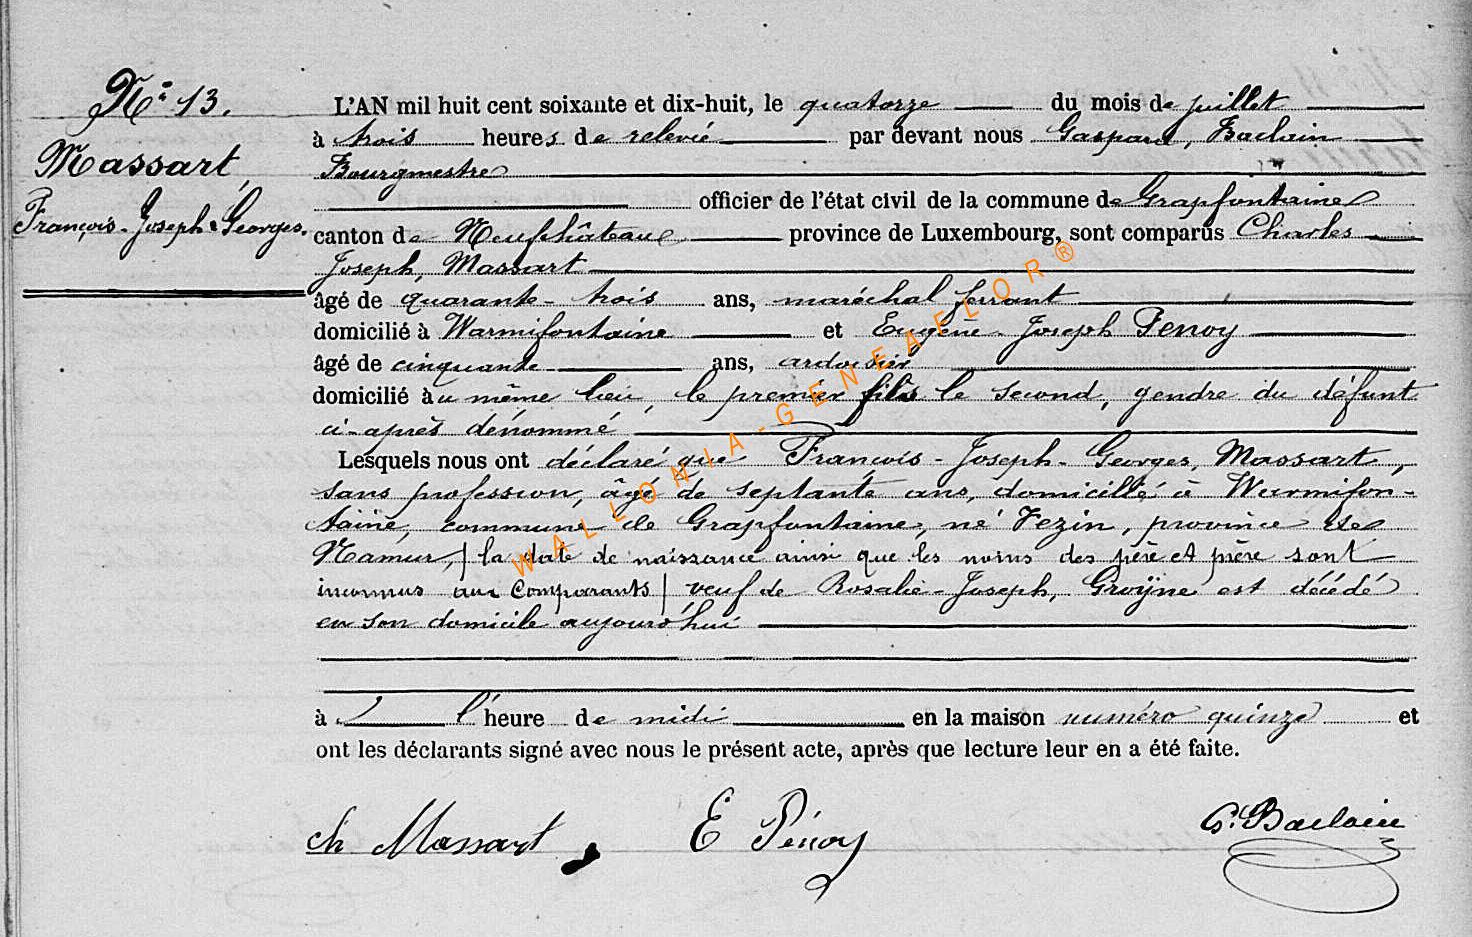 N° 13.
Massart,
François-Joseph-Georges.
L'AN mil huit cent soixante et dix-huit, le quatorze du mois de juillet
à trois heures de relevée par devant nous Gaspard, Baclain
Bourgmestre
officier de l'état civil de la commune de Grapfontaine
canton de Neufchâteau province de Luxembourg, sont comparus Charles
Joseph, Massart
âgé de quarante-trois ans, maréchal ferrant
domicilié à Warmifontaine et Eugène-Joseph Penoy
âgé de cinquante ans, ardoisier
domicilié au même lieu, le premier fils le second, gendre du défunt
ci-après dénommé
Lesquels nous ont déclaré que François-Joseph-Georges, Massart,
sans profession, âgé de septante ans, domicilié à Warmifon-
taine, commune de Grapfontaine, né Vezin, province de
Namur, | la date de naissance ainsi que les noms des père et mère sont
inconnus aux comparants | veuf de Rosalie-Joseph, Groÿne est décédé
en son domicile aujourd'hui
à l'heure de midi en la maison numéro quinze et
ont les déclarants signé avec nous le présent acte, après que lecture leur en a été faite.
ch Massart E Pénoy G. Baclain
WALLONIA-GENEAELOR®